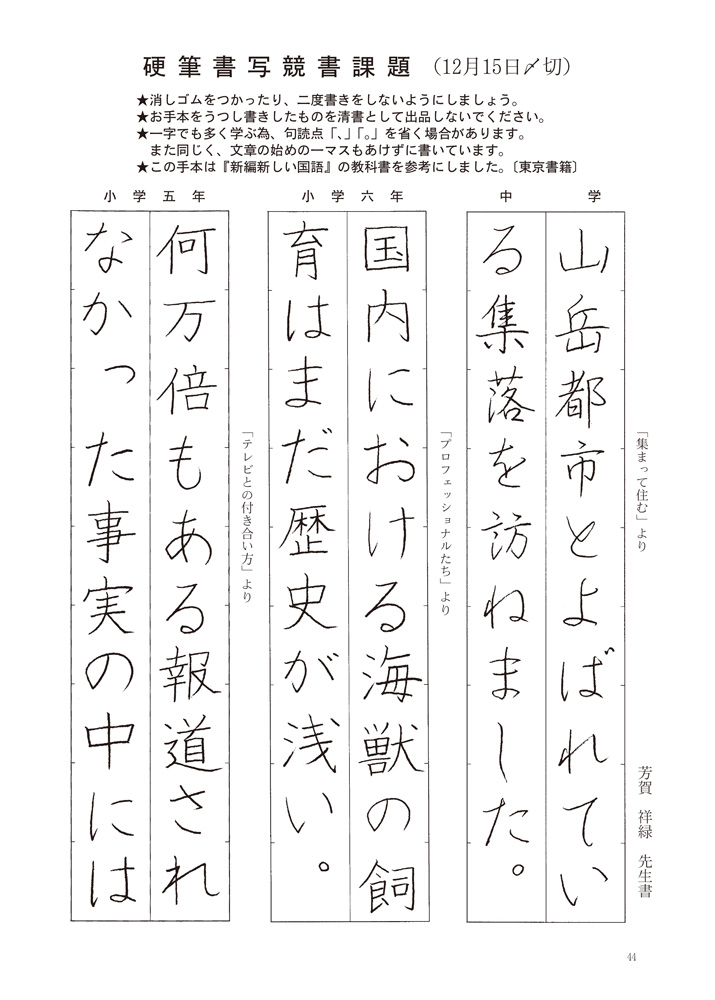 硬筆書写競書課題（12月15日〆切）
★消しゴムをつかったり、二度書きをしないようにしましょう。
★お手本をうつし書きしたものを清書として出品しないでください。
★一字でも多く学ぶ為、句読点「、」「。」を省く場合があります。
また同じく、文章の始めの一マスもあけずに書いています。
★この手本は『新編新しい国語』の教科書を参考にしました。〔東京書籍〕
中学
「集まって住む」より
芳賀 祥緑 先生書
山岳都市とよばれてい
る集落を訪ねました。
小学六年
「プロフェッショナルたち」より
国内における海獣の飼
育はまだ歴史が浅い。
小学五年
「テレビとの付き合い方」より
何万倍もある報道され
なかった事実の中には
44